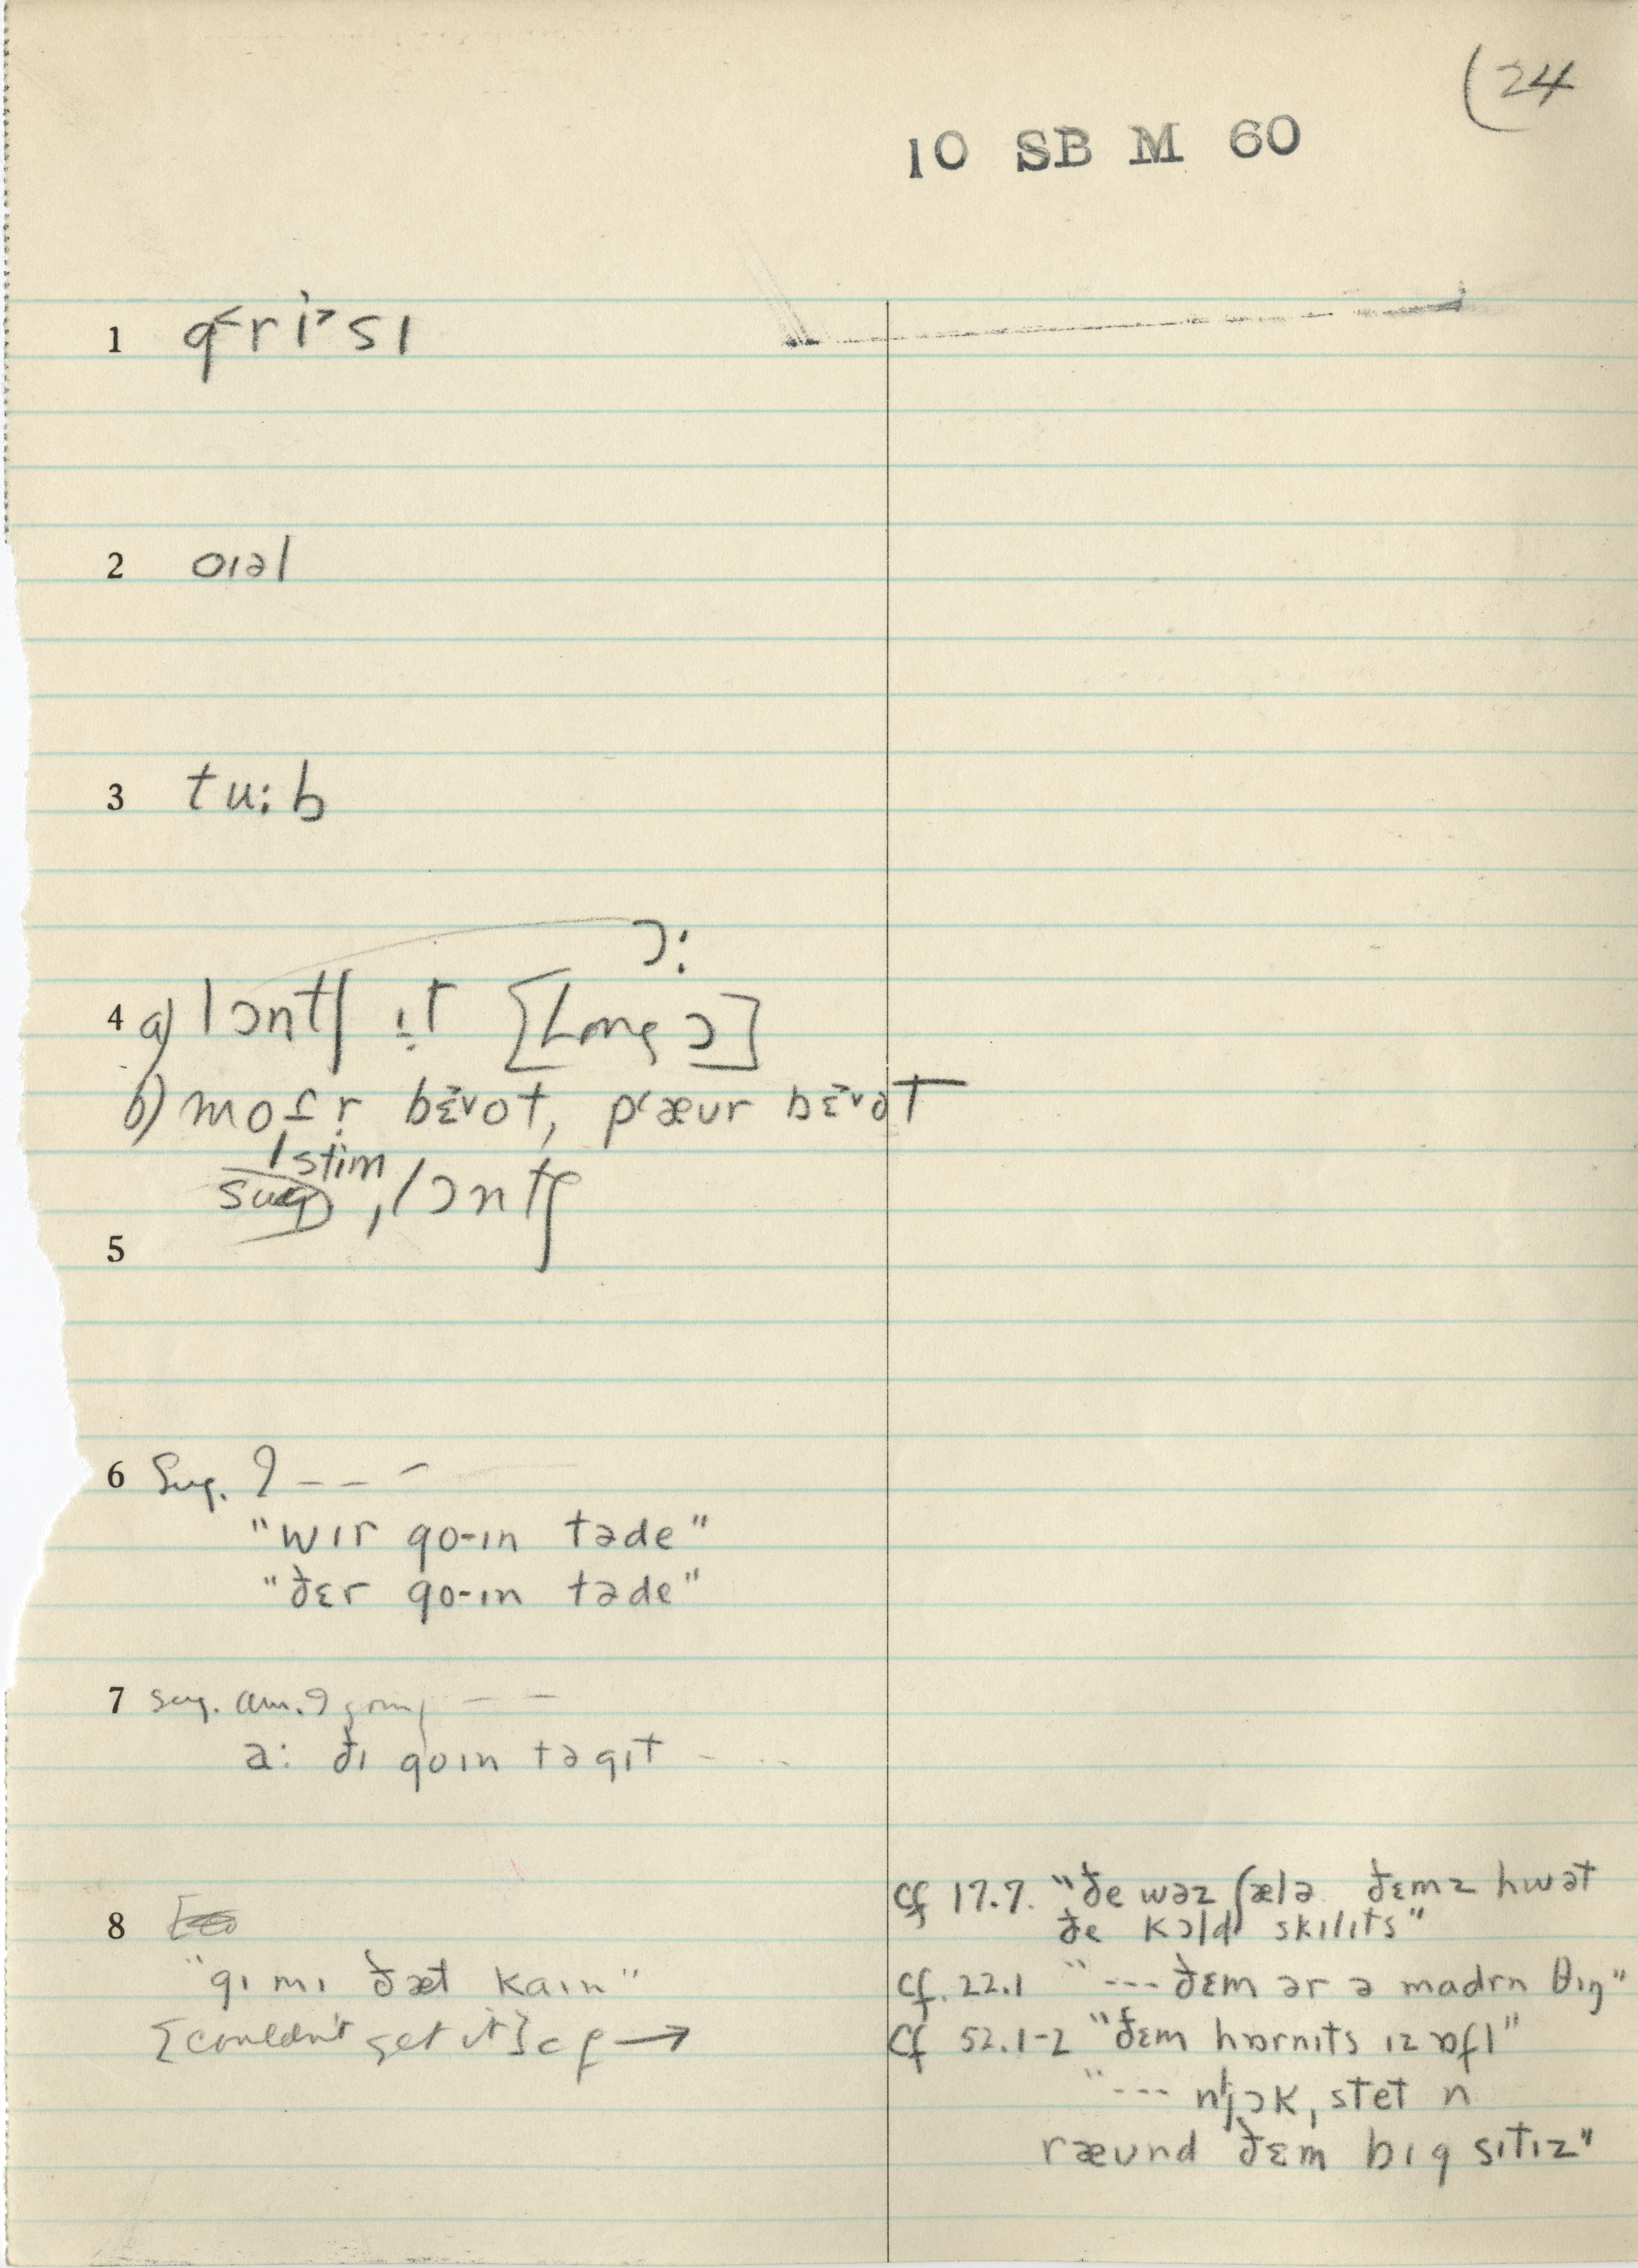 (24
10 SB M 60
1 g˂ri˃sɪ
2 oɪəl
3 tu:b
ɔ:
4 a) lɔntʃ ɪt [Long ɔ]
b) motr bɛvot, pæur bɛvət
stim
sug, lɔntʃ
5
6 Sug. ? – – –
"wɪr go-ɪn təde"
"ðɛr go-ɪn təde"
7 sug. am. ? going – –
a: ðɪ goɪn tə gɪt – ..
8
"gɪ mɪ ðæt kaɪn"
[couldn't get it] cf →
cf 17.7. "ðe wəz ʃælə ðɛmz hwət
ðe kɔld skɪlɪts"
cf. 22.1 "--- ðɛm ər ə madrn θɪŋ"
cf 52.1-2 "ðɛm hɒrnɪts ɪz ɒfl"
"--- njɔk, stet n
ræund ðɛm bɪg sɪtɪz"